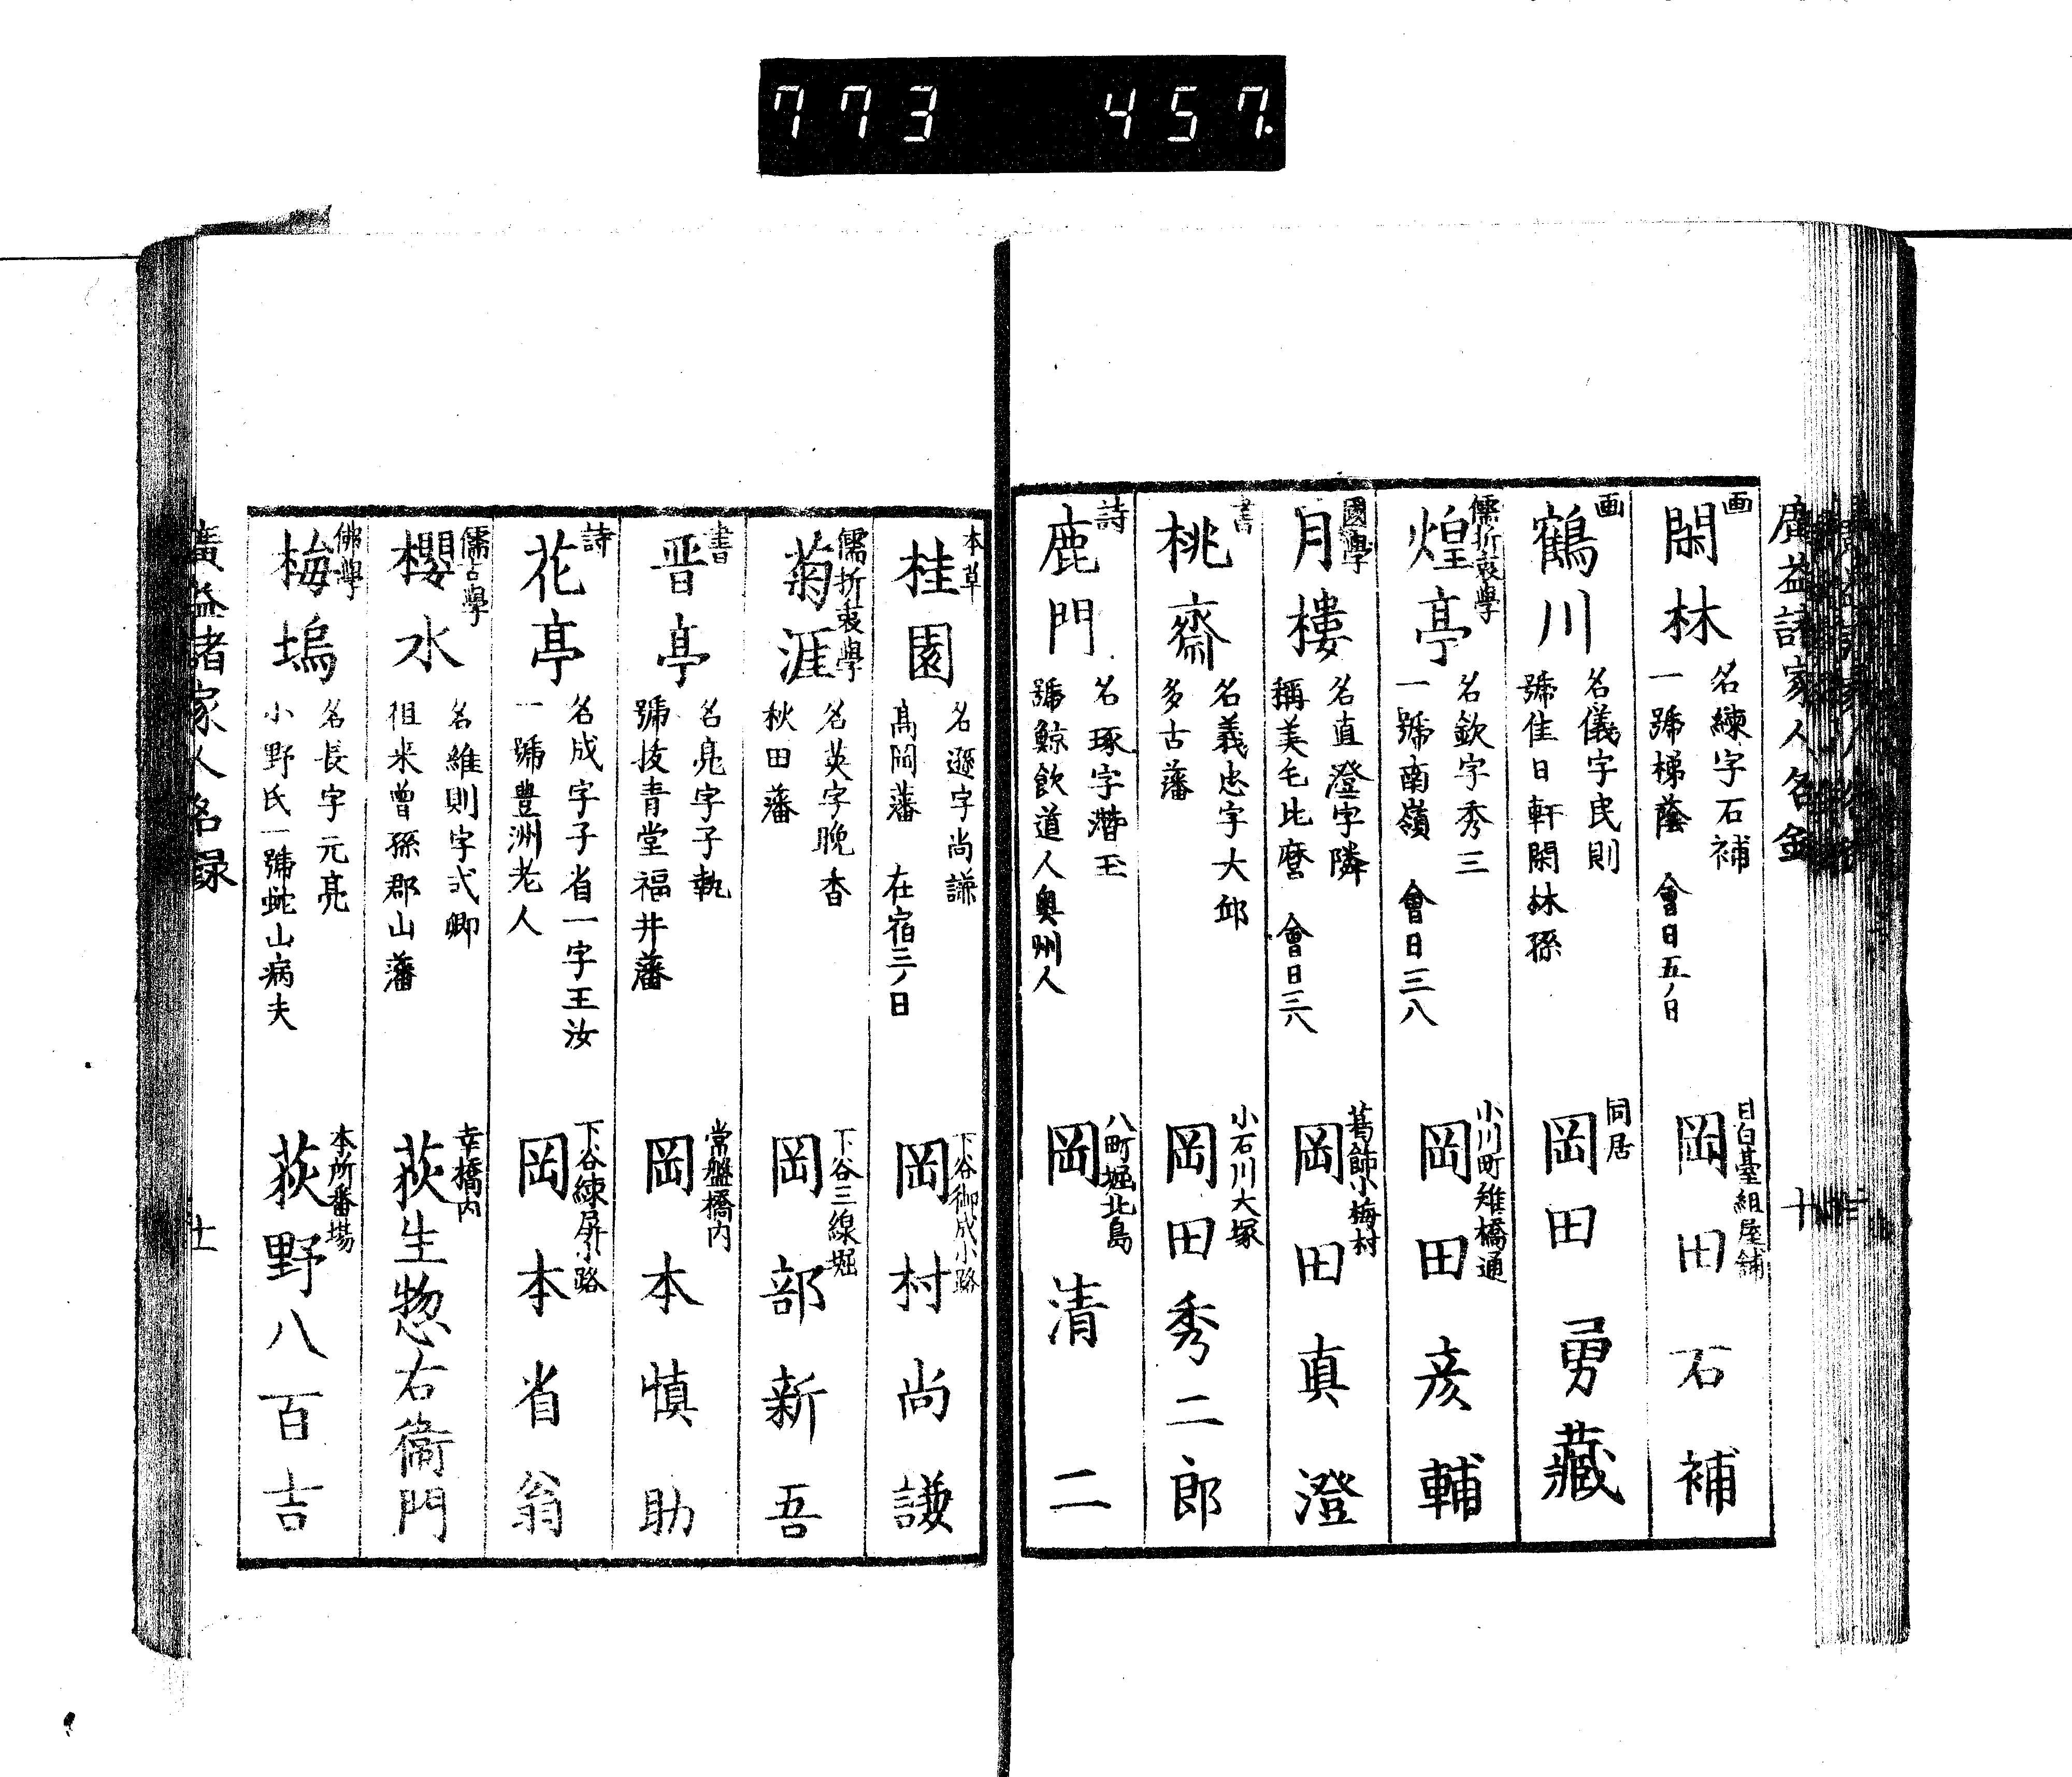 773 457.
廣益諸家人名録
十
画
閑林
名練字石補
一號梯蔭 會日五ノ日
目白臺組屋鋪
岡田石補
画
鶴川
名儀字民則
號佳日軒閑林孫
同居
岡田勇藏
儒折衷學
煌亭
名欽字秀三
一號南嶺 會日三八
小川町雉橋通
岡田彦輔
國學
月樓
名直澄字隣
稱美毛比麿 會日三六
葛飾小梅村
岡田真澄
書
桃齋
名義忠字大邱
多古藩
小石川大塚
岡田秀二郎
詩
鹿門
名琢字潛玉
號鯨飲道人奥州人
八町堀北島
岡清二
本草
桂園
名遜字尚謙
髙岡藩 在宿三ノ日
下谷御成小路
岡村尚謙
儒折衷學
菊涯
名英字晩香
秋田藩
下谷三線堀
岡部新吾
書
晋亭
名亮字子執
號抜青堂福井藩
常盤橋内
岡本慎助
詩
花亭
名成字子省一字王汝
一號豊洲老人
下谷練屏小路
岡本省翁
儒古學
櫻水
名維則字弍卿
徂来曾孫郡山藩
幸橋内
荻生惣右衞門
佛學
梅塢
名長字元亮
小野氏一號蛇山病夫
本所番場
荻野八百吉
廣益諸家人名録
十一